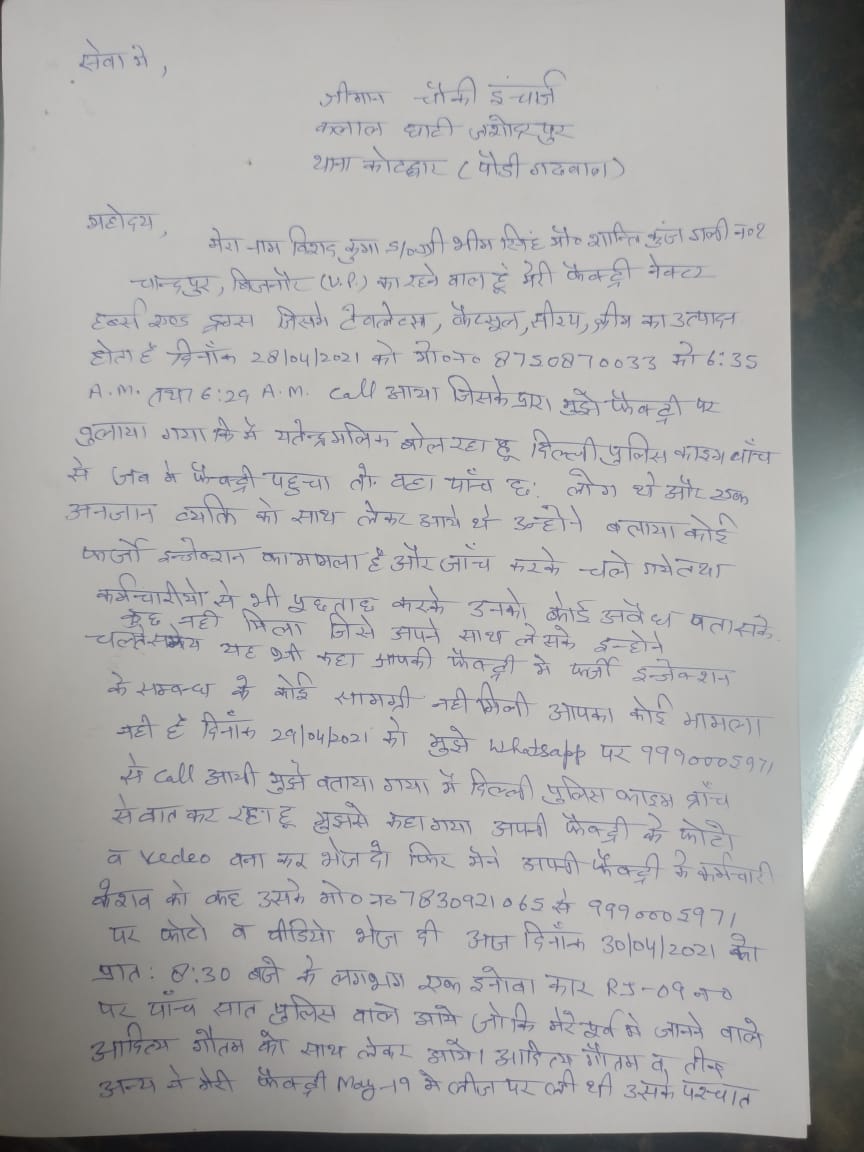 सेवा मे,
श्रीमान चौकी इंचार्ज
कलाल घाटी जशोदरपुर
थाना कोटद्वार (पौडी गढवाल)
महोदय,
मेरा नाम विशद कुमा S/o श्री भीम सिंह मौ० शान्ति कुंज गली न०2
चान्दपुर, बिजनौर (U.P.) का रहने वाल हूं मेरी फैक्ट्री नेक्टर
हर्ब्स एण्ड ड्रग्स जिसमे टेबलेटस, कैप्सूल, सीरप, क्रीम का उत्पादन
होता है दिनाँक 28/04/2021 को मो०न० 8750870033 से 6:35
A.M. तथा 6:29 A.M. Call आया जिसके द्वारा मुझे फैक्ट्री पर
बुलाया गया कि मै यतेन्द्र मलिक बोल रहा हू दिल्ली पुलिस क्राइम ब्राँच
से जब मे फैक्ट्री पहुचा तो वहा पाँच छः लोग थे और एक
अनजान व्यक्ति को साथ लेकर आये थे उन्होने बताया कोई
फर्जी इन्जेक्शन का मामला है और जाँच करके चले गये तथा
कर्मचारीयो से भी पुछताछ करके उनको कोई अवैध पता सके
कुछ नही मिला जिसे अपने साथ ले सके इन्होने
चलते समय यह भी कहा आपकी फैक्ट्री मे फर्जी इन्जेक्शन
के सम्बन्ध के कोई सामग्री नही मिली आपका कोई मामला
नही है दिनाँक 29/04/2021 को मुझे Whatsapp पर 9990005971
से Call आयी मुझे बताया गया मै दिल्ली पुलिस क्राइम ब्राँच
से बात कर रहा हू मुझसे कहा गया अपनी फैक्ट्री के फोटो
व Vedeo बना कर भेज दो फिर मैने अपनी फैक्ट्री के कर्मचारी
केशव को कह उसके मो० न० 7830921065 से 9990005971
पर फोटो व वीडियो भेज दी आज दिनाँक 30/04/2021 को
प्रातः 8:30 बजे के लगभग एक इनोवा कार RJ-09 न०
पर पाँच सात पुलिस वाले आये जो कि मेरे पूर्व मे जानने वाले
आदित्य गौतम को साथ लेकर आये। आदित्य गौतम व तीन
अन्य ने मेरी फैक्ट्री May-19 मे लीज पर ली थी उसके पश्चात